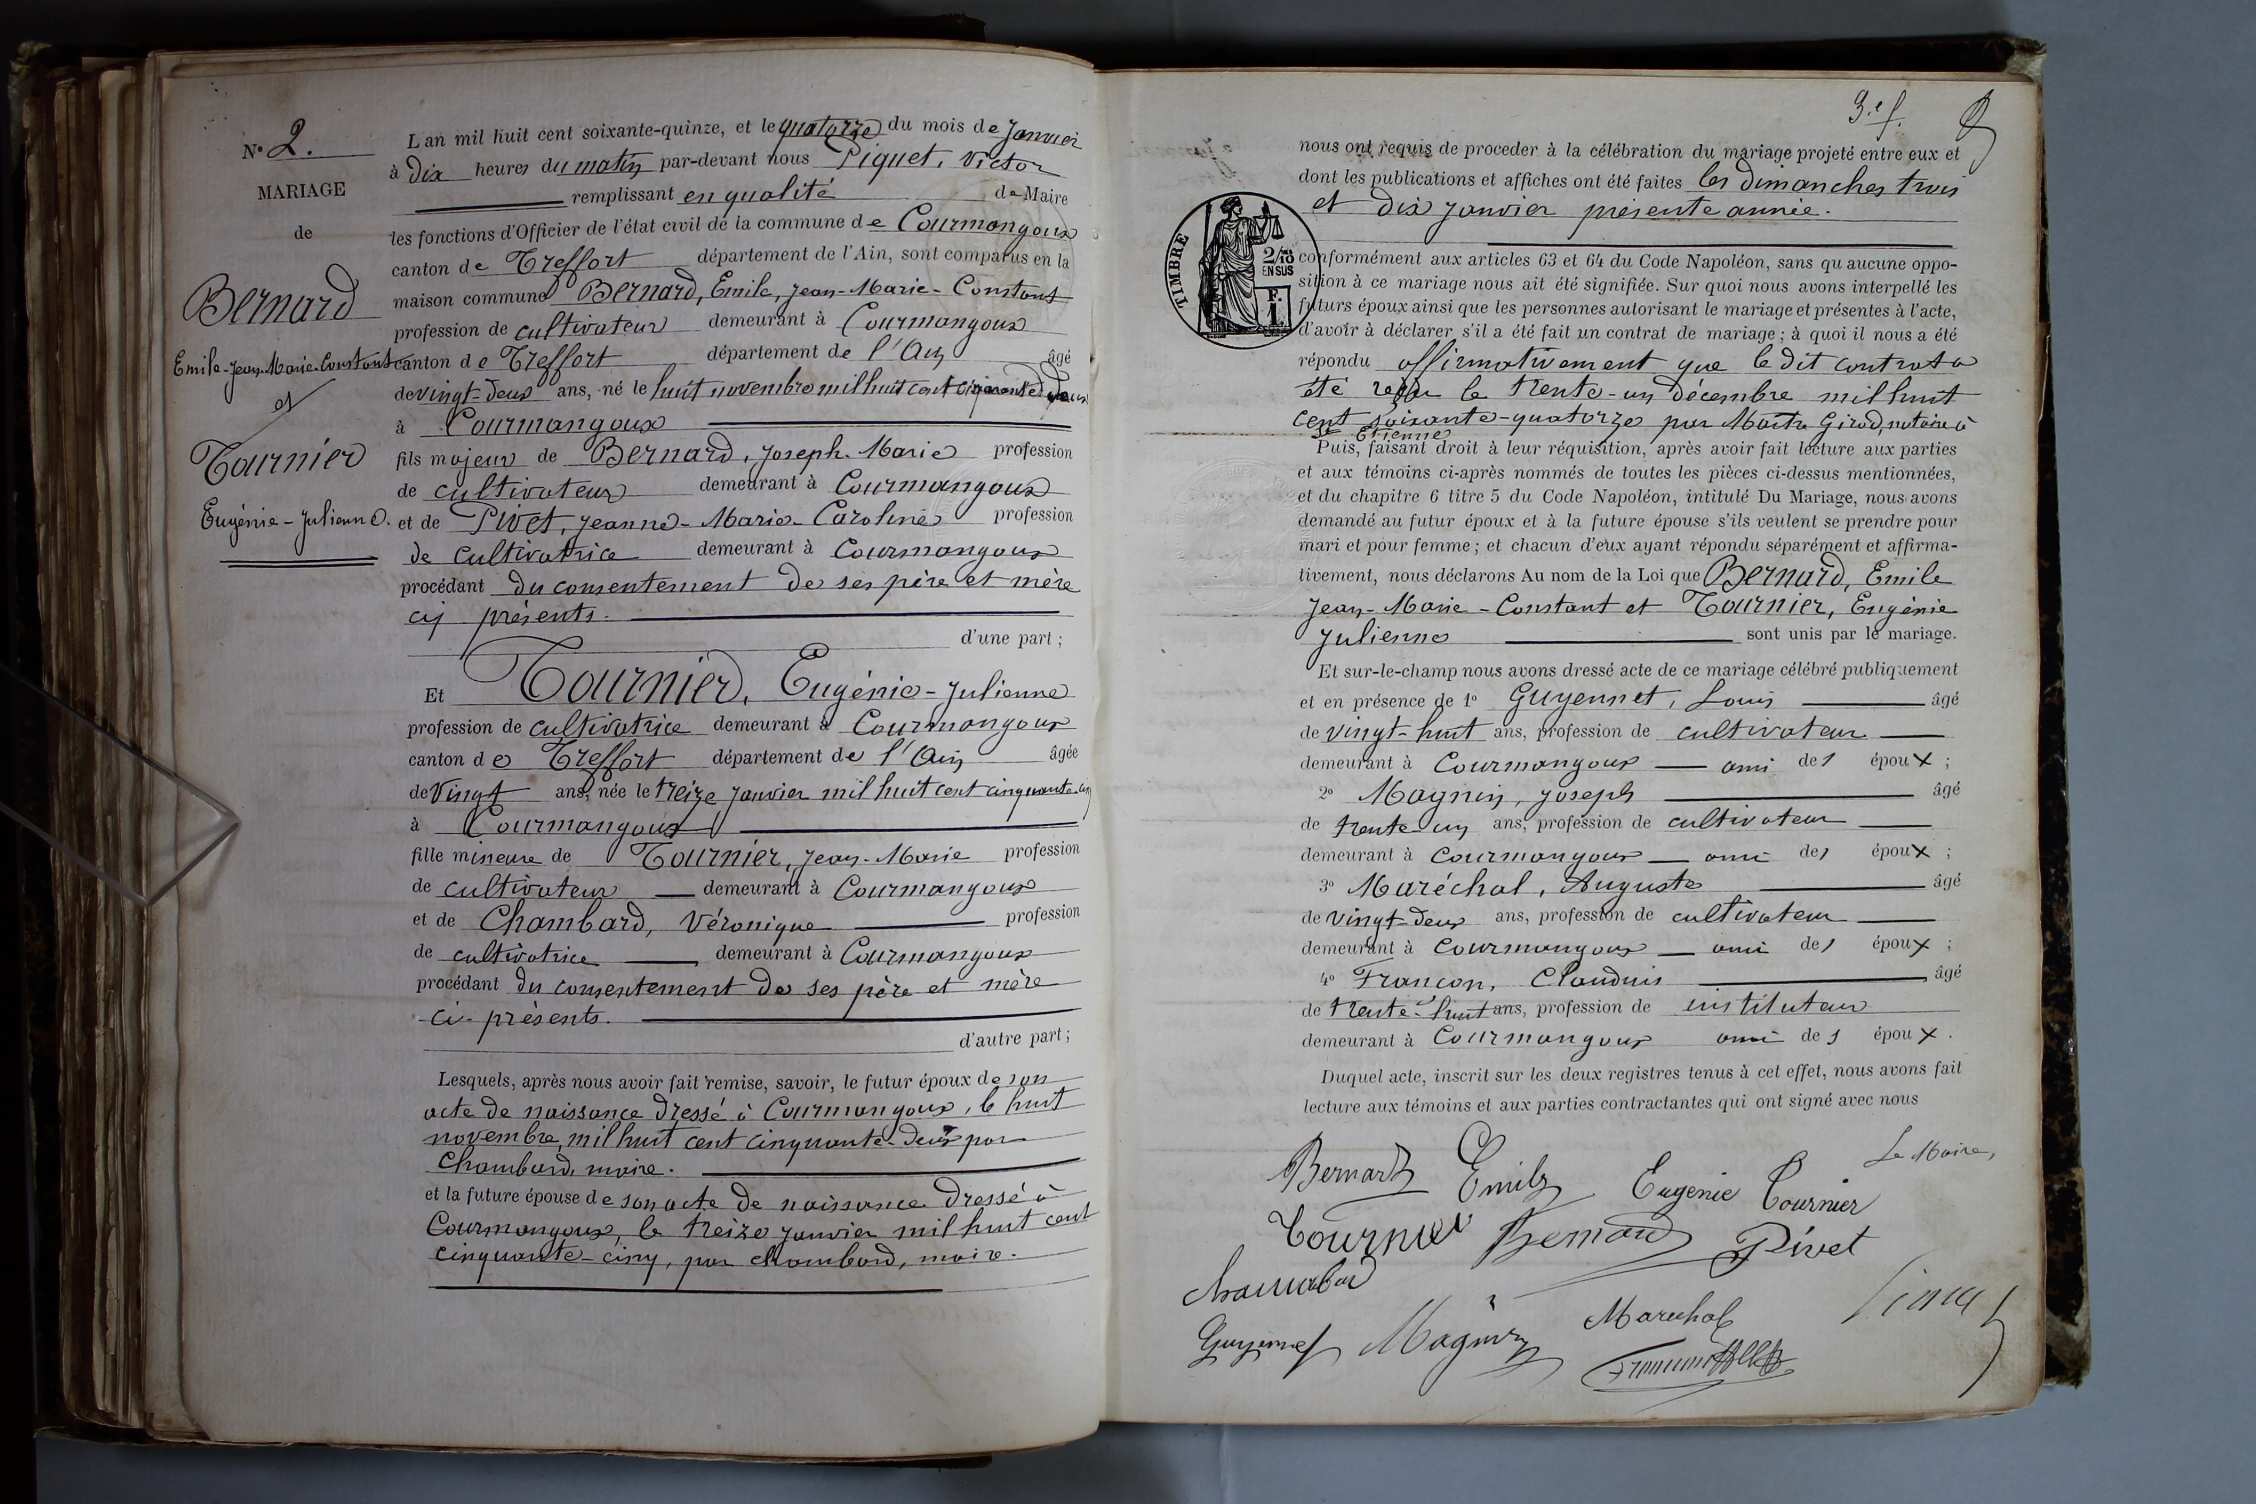 N° 2.
MARIAGE
de
Bernard
Emile-Jean-Marie-Constant
et
Tournier
Eugénie-Julienne.
L'an mil huit cent soixante-quinze, et le quatorze du mois de Janvier
à dix heures du matin par-devant nous Piquet, Victor
remplissant en qualité de Maire
les fonctions d'Officier de l'état civil de la commune de Courmangoux
canton de Treffort département de l'Ain, sont comparus en la
maison commune Bernard, Emile, Jean-Marie-Constant
profession de cultivateur demeurant à Courmangoux
canton de Treffort département de l'Ain âgé
de vingt-deux ans, né le huit novembre mil huit cent cinquante deux
à Courmangoux
fils majeur de Bernard, Joseph-Marie profession
de cultivateur demeurant à Courmangoux
et de Pivet, Jeanne-Marie-Caroline profession
de cultivatrice demeurant à Courmangoux
procédant du consentement de ses père et mère
ci présents.
d'une part ;
Et Tournier, Eugénie-Julienne
profession de cultivatrice demeurant à Courmangoux
canton de Treffort département de l'Ain âgée
de vingt ans, née le treize janvier mil huit cent cinquante-cinq
à Courmangoux
fille mineure de Tournier, Jean-Marie profession
de cultivateur demeurant à Courmangoux
et de Chambard, Véronique profession
de cultivatrice demeurant à Courmangoux
procédant du consentement de ses père et mère
ci-présents.
d'autre part ;
Lesquels, après nous avoir fait remise, savoir, le futur époux de son
acte de naissance dressé à Courmangoux, le huit
novembre mil huit cent cinquante-deux par
Chambard, maire.
et la future épouse de son acte de naissance dressé à
Courmangoux, le treize janvier mil huit cent
cinquante-cinq, par Chambard, maire.
3.e f.
TIMBRE
2/10 EN SUS
F. 1.
nous ont requis de proceder à la célébration du mariage projeté entre eux et
dont les publications et affiches ont été faites les dimanches trois
et dix janvier présente année.
conformément aux articles 63 et 64 du Code Napoléon, sans qu'aucune oppo-
sition à ce mariage nous ait été signifiée. Sur quoi nous avons interpellé les
futurs époux ainsi que les personnes autorisant le mariage et présentes à l'acte,
d'avoir à déclarer s'il a été fait un contrat de mariage ; à quoi il nous a été
répondu affirmativement que le dit contrat a
été reçu le trente-un décembre mil huit
cent soixante-quatorze par Maître Girod, notaire à
St Etienne
Puis, faisant droit à leur réquisition, après avoir fait lecture aux parties
et aux témoins ci-après nommés de toutes les pièces ci-dessus mentionnées,
et du chapitre 6 titre 5 du Code Napoléon, intitulé Du Mariage, nous avons
demandé au futur époux et à la future épouse s'ils veulent se prendre pour
mari et pour femme ; et chacun d'eux ayant répondu séparément et affirma-
tivement, nous déclarons Au nom de la Loi que Bernard, Emile
Jean-Marie-Constant et Tournier, Eugénie
Julienne sont unis par le mariage.
Et sur-le-champ nous avons dressé acte de ce mariage célébré publiquement
et en présence de 1° Guyennet, Louis âgé
de vingt-huit ans, profession de cultivateur
demeurant à Courmangoux ami de l époux ;
2° Magnin, Joseph âgé
de trente-un ans, profession de cultivateur
demeurant à Courmangoux ami de l époux ;
3° Maréchal, Auguste âgé
de vingt-deux ans, profession de cultivateur
demeurant à Courmangoux ami de l époux ;
4° Françon, Claudius âgé
de trente-huit ans, profession de instituteur
demeurant à Courmangoux ami de l époux.
Duquel acte, inscrit sur les deux registres tenus à cet effet, nous avons fait
lecture aux témoins et aux parties contractantes qui ont signé avec nous
Le Maire,
Bernard Emile Eugénie Tournier
Tournier Bernard Pivet
Chambard
Guyennet Magnin Marechal